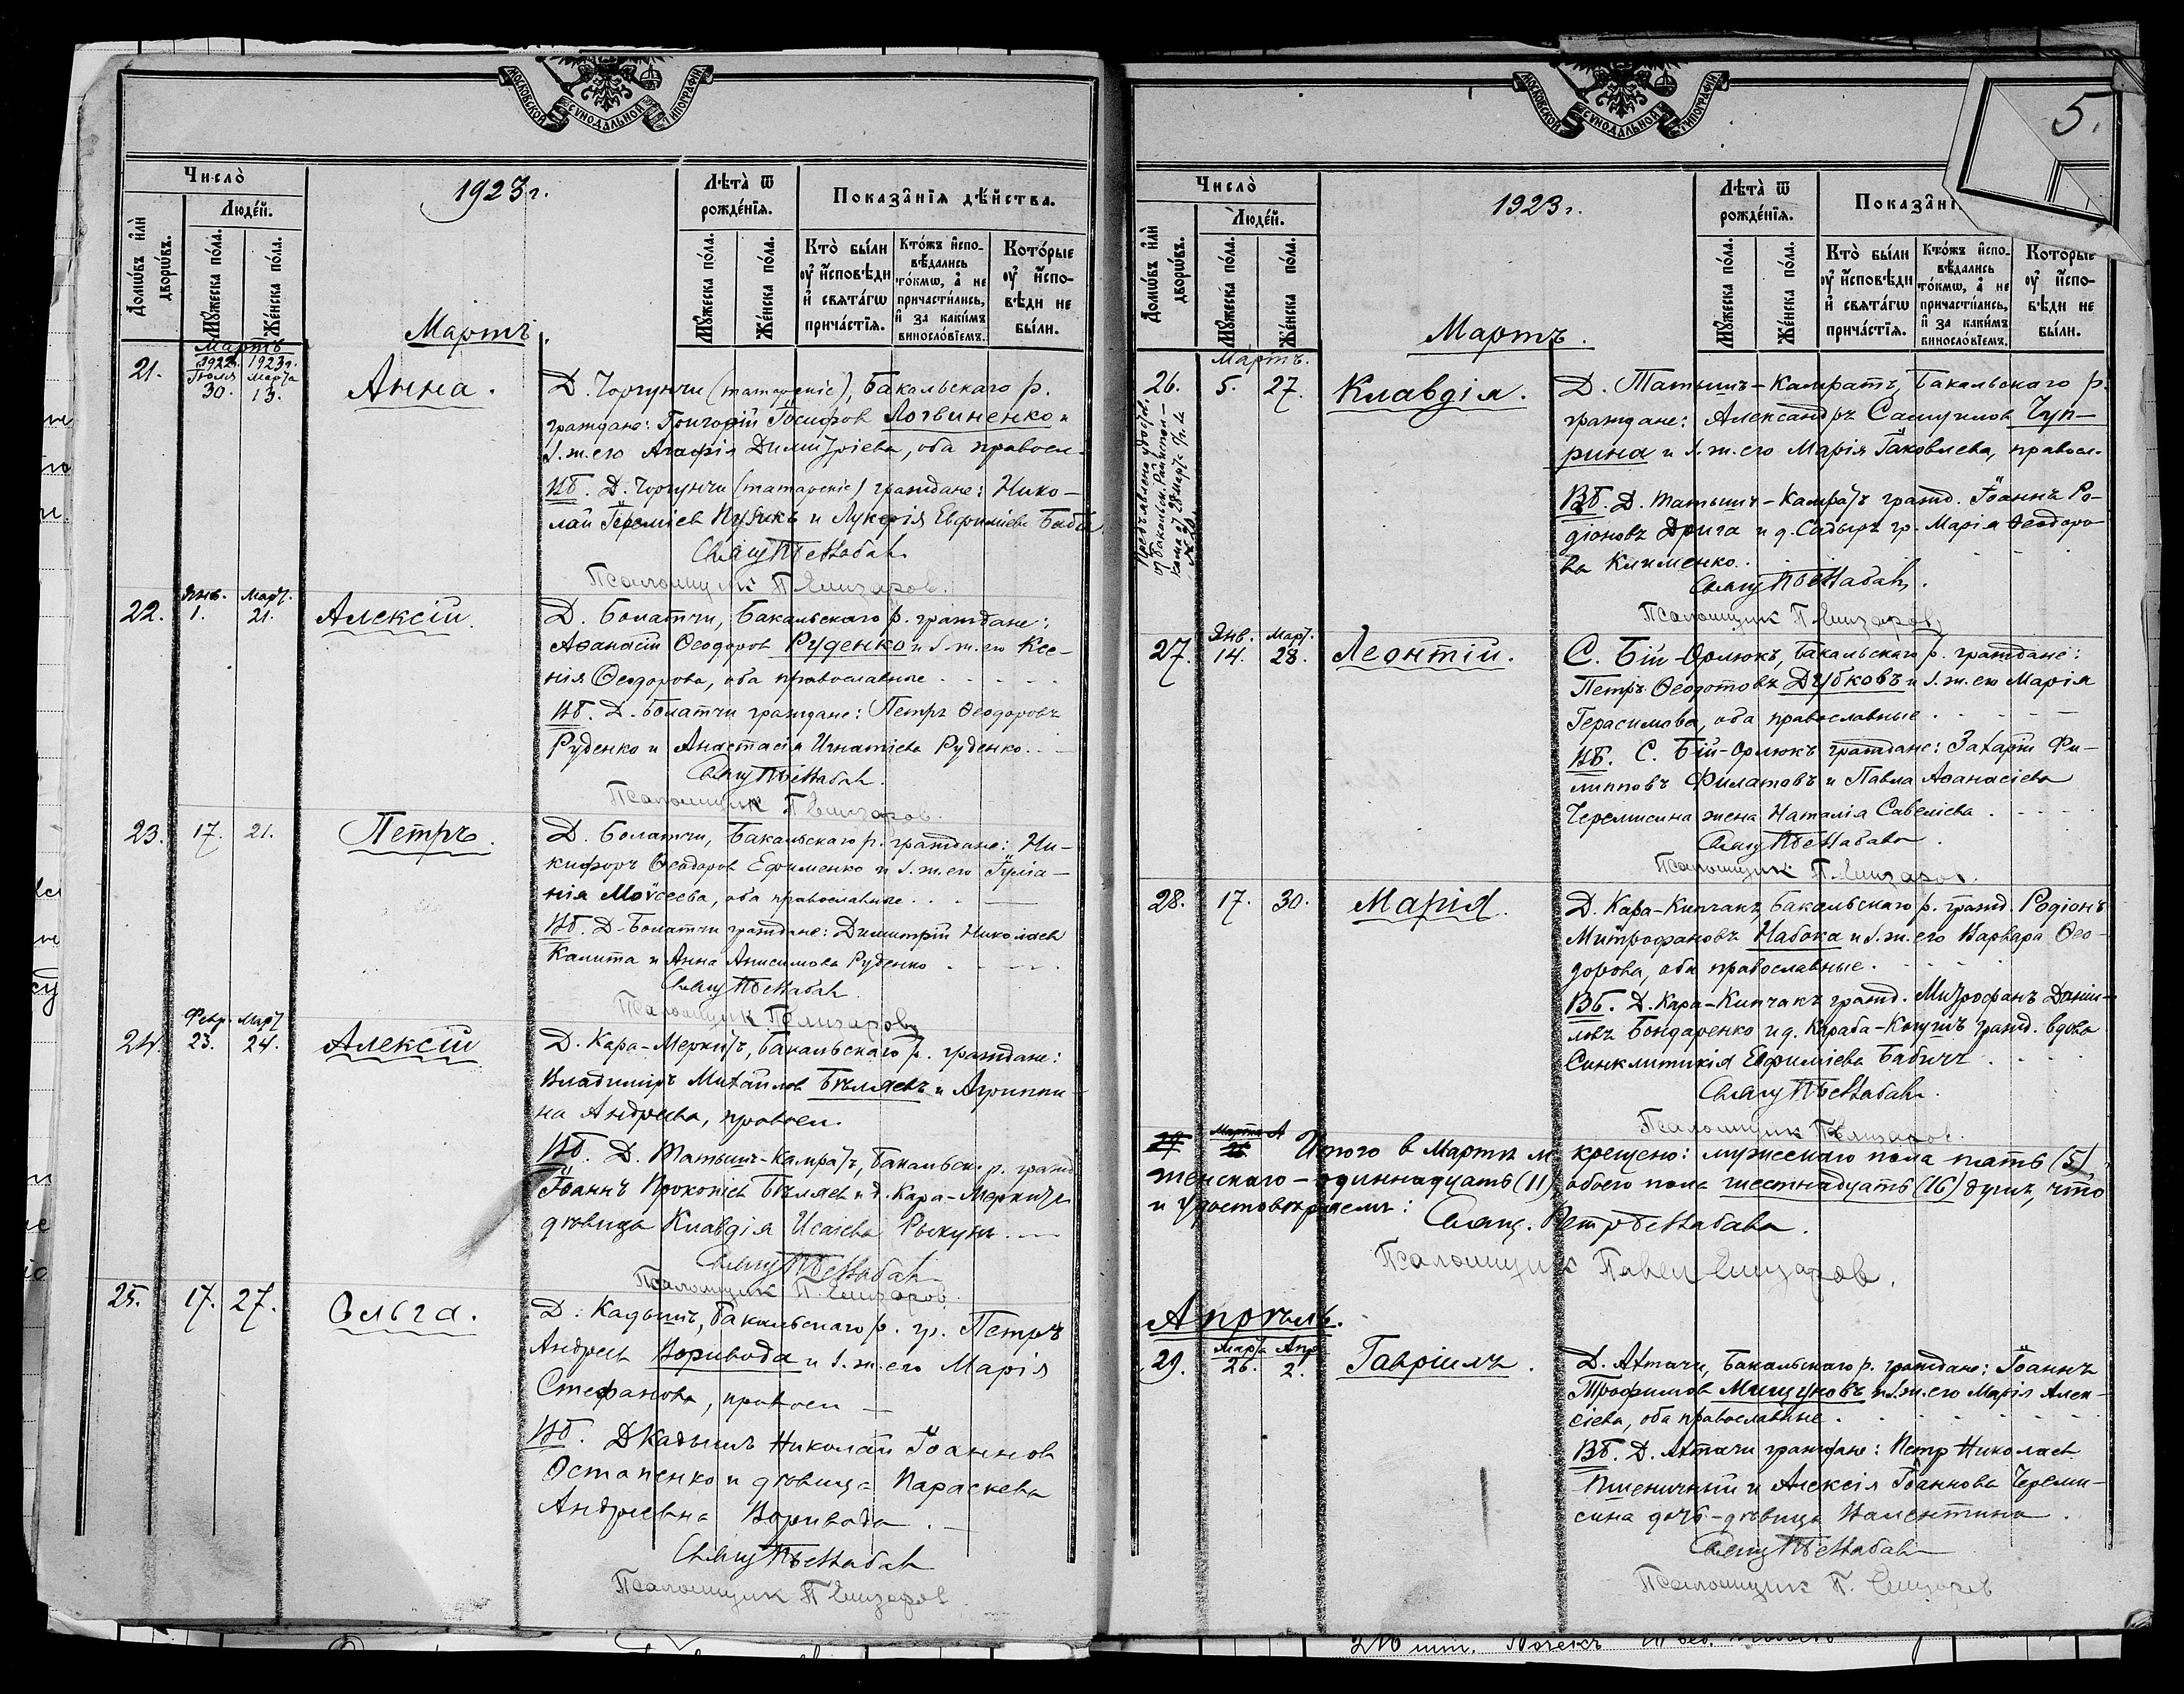 МОСКОВСКОЙ СѴНОДАЛЬНОЙ ТИПОГРАФІИ
Число̀
1923 г.
Лѣта̀ ѿ рожде́нїя.
Показа̂нїя дѣ́йства.
Домѡ́въ и҆лѝ дворѡ́въ.
Люде́й.
Мꙋ́жеска по́ла.
Же́нска по́ла.
Мꙋ́жеска по́ла.
Же́нска по́ла.
Кто̀ бы́ли ᲂу҆ и҆́сповѣди и҆ свята́гѡ прича́стїя.
Кто́жъ и҆спо-вѣ́дались то́кмѡ, а҆ не причасти́лись, и҆ за каки́мъ виносло́вїемъ.
Кото́рые ᲂу҆ и҆́спо-вѣди не бы́ли.
Мартъ.
Мартъ
21.
1922 г. 1923 г.
Іюля Марта
30. 13.
Анна.
Д. Чоргунчи (татарскіе), Бакальскаго р.
граждане: Григорій Іосифов Логвиненко и
з. ж. его Агафія Димитріева, оба правосл.
ВБ. Д. Чоргунчи (татарскіе) граждане: Нико-
лай Іереміев и Лукерія Евфиміева
Псаломщик П Елизаров.
22.
Янв. Март.
1. 21.
Алексій.
Д. Болатчи, Бакальскаго р. граждане:
Аѳанасій Ѳеодоров Руденко и з. ж. его Ксе-
нія Ѳеодорова, оба православные
ВБ. Д. Болатчи граждане: Петръ Ѳеодоровъ
Руденко и Анастасія Игнатіева Руденко.
Псаломщик П Елизаров.
23. 17. 21.
Петръ.
Д. Болатчи, Бакальскаго р. граждане: Ни-
кифоръ Ѳеодоров Ефименко и з. ж. его Іуліа-
нія Моѵсеева, оба православные.
ВБ. Д. Болатчи граждане: Димитрій Николаев
Калита и Анна Анисимова Руденко
Псаломщик П Елизаров
Февр. Март
24. 23. 24.
Алексій
Д. Кара-Меркитъ, Бакальскаго р. граждане:
Владиміръ Михайлов Бѣляевъ и Агриппи-
на Андреева, правосл.
ВБ. Д. Татышъ-Камратъ, Бакальск. р. гражд
Іоаннъ Прокопіев Бѣляев и д. Кара-Меркитъ
дѣвица Клавдія Исаіева
Псаломщик П. Елизаров.
25. 17. 27.
Ольга.
Д. Кадышъ, Бакальскаго р. гр. Петръ
Андреев Воривода и з. ж. его Марія
Стефанова, правосл
ВБ. Д Кадышъ Николай Іоаннов
Остапенко и дѣвица Параскева
Андреевна Воривода.
Псаломщик П Елизаров
5.
МОСКОВСКОЙ СѴНОДАЛЬНОЙ ТИПОГРАФІИ
Число̀
1923 г.
Лѣта̀ ѿ рожде́нїя.
Показа̂нї
Домѡ́въ и҆лѝ дворѡ́въ.
Люде́й.
Мꙋ́жеска по́ла.
Же́нска по́ла.
Мꙋ́жеска по́ла.
Же́нска по́ла.
Кто̀ бы́ли ᲂу҆ и҆́сповѣди и҆ свята́гѡ прича́стїя.
Кто́жъ и҆спо-вѣ́дались то́кмѡ, а҆ не причасти́лись, и҆ за каки́мъ виносло́вїемъ.
Кото́рые ᲂу҆ и҆́спо-вѣди не бы́ли.
Мартъ.
Мартъ.
26. 5. 27.
Клавдія.
Д. Татышъ-Камратъ, Бакальскаго р.
граждане: Александръ Самуилов Чуп-
рина и з. ж. его Марія Іаковлева, правосл.
ВБ. Д. Татышъ-Камратъ гражд. Іоаннъ Ро-
діоновъ Дрига и д. Садыръ гр. Марія Ѳеодоро-
ва Клименко.
Псаломщик П Елизаров
Янв. Март.
27. 14. 28.
Леонтій.
С. Бій-Орлюкъ, Бакальскаго р. граждане:
Петръ Ѳеодотовъ Дубковъ и з. ж. его Марія
Герасимова, оба православные
ВБ. С. Бій-Орлюкъ граждане: Захарій Фи-
липповъ Филатовъ и Павла Аѳанасіева
Черемисина жена Наталія Савеліева
Псаломщик П. Елизаров.
28. 17. 30.
Марія.
Д. Кара-Кипчакъ, Бакальскаго р. гражд. Родіонъ
Митрофановъ Набока и з. ж. его Варвара Ѳео-
дорова, оба православные.
ВБ. Д. Кара-Кипчакъ гражд. Митрофанъ Даніи-
ловъ Бондаренко и д. гражд. вдова
Синклитикія Евфиміева Бабичъ
Псаломщик П Елизаров.
Итого в Мартѣ м. крещено: мужескаго пола пять (5),
женскаго - одиннадцать (11), обоего пола шестнадцать (16) душъ, что
и удостовѣряемъ:
Псаломщик Павел Елизаров.
Апрѣль.
Марта Апр
29. 26. 2.
Гавріилъ.
Д. Ахтачи, Бакальскаго р. граждане: Іоаннъ
Трофимов Мищуковъ и з. ж. его Марія Алек-
сіева, оба православные.
ВБ. Д. Ахтачи граждане: Петр Николаев
Пшеничный и Алексія Іоаннова Череми-
сина дочь-дѣвица Валентина.
Псаломщик П. Елизаров